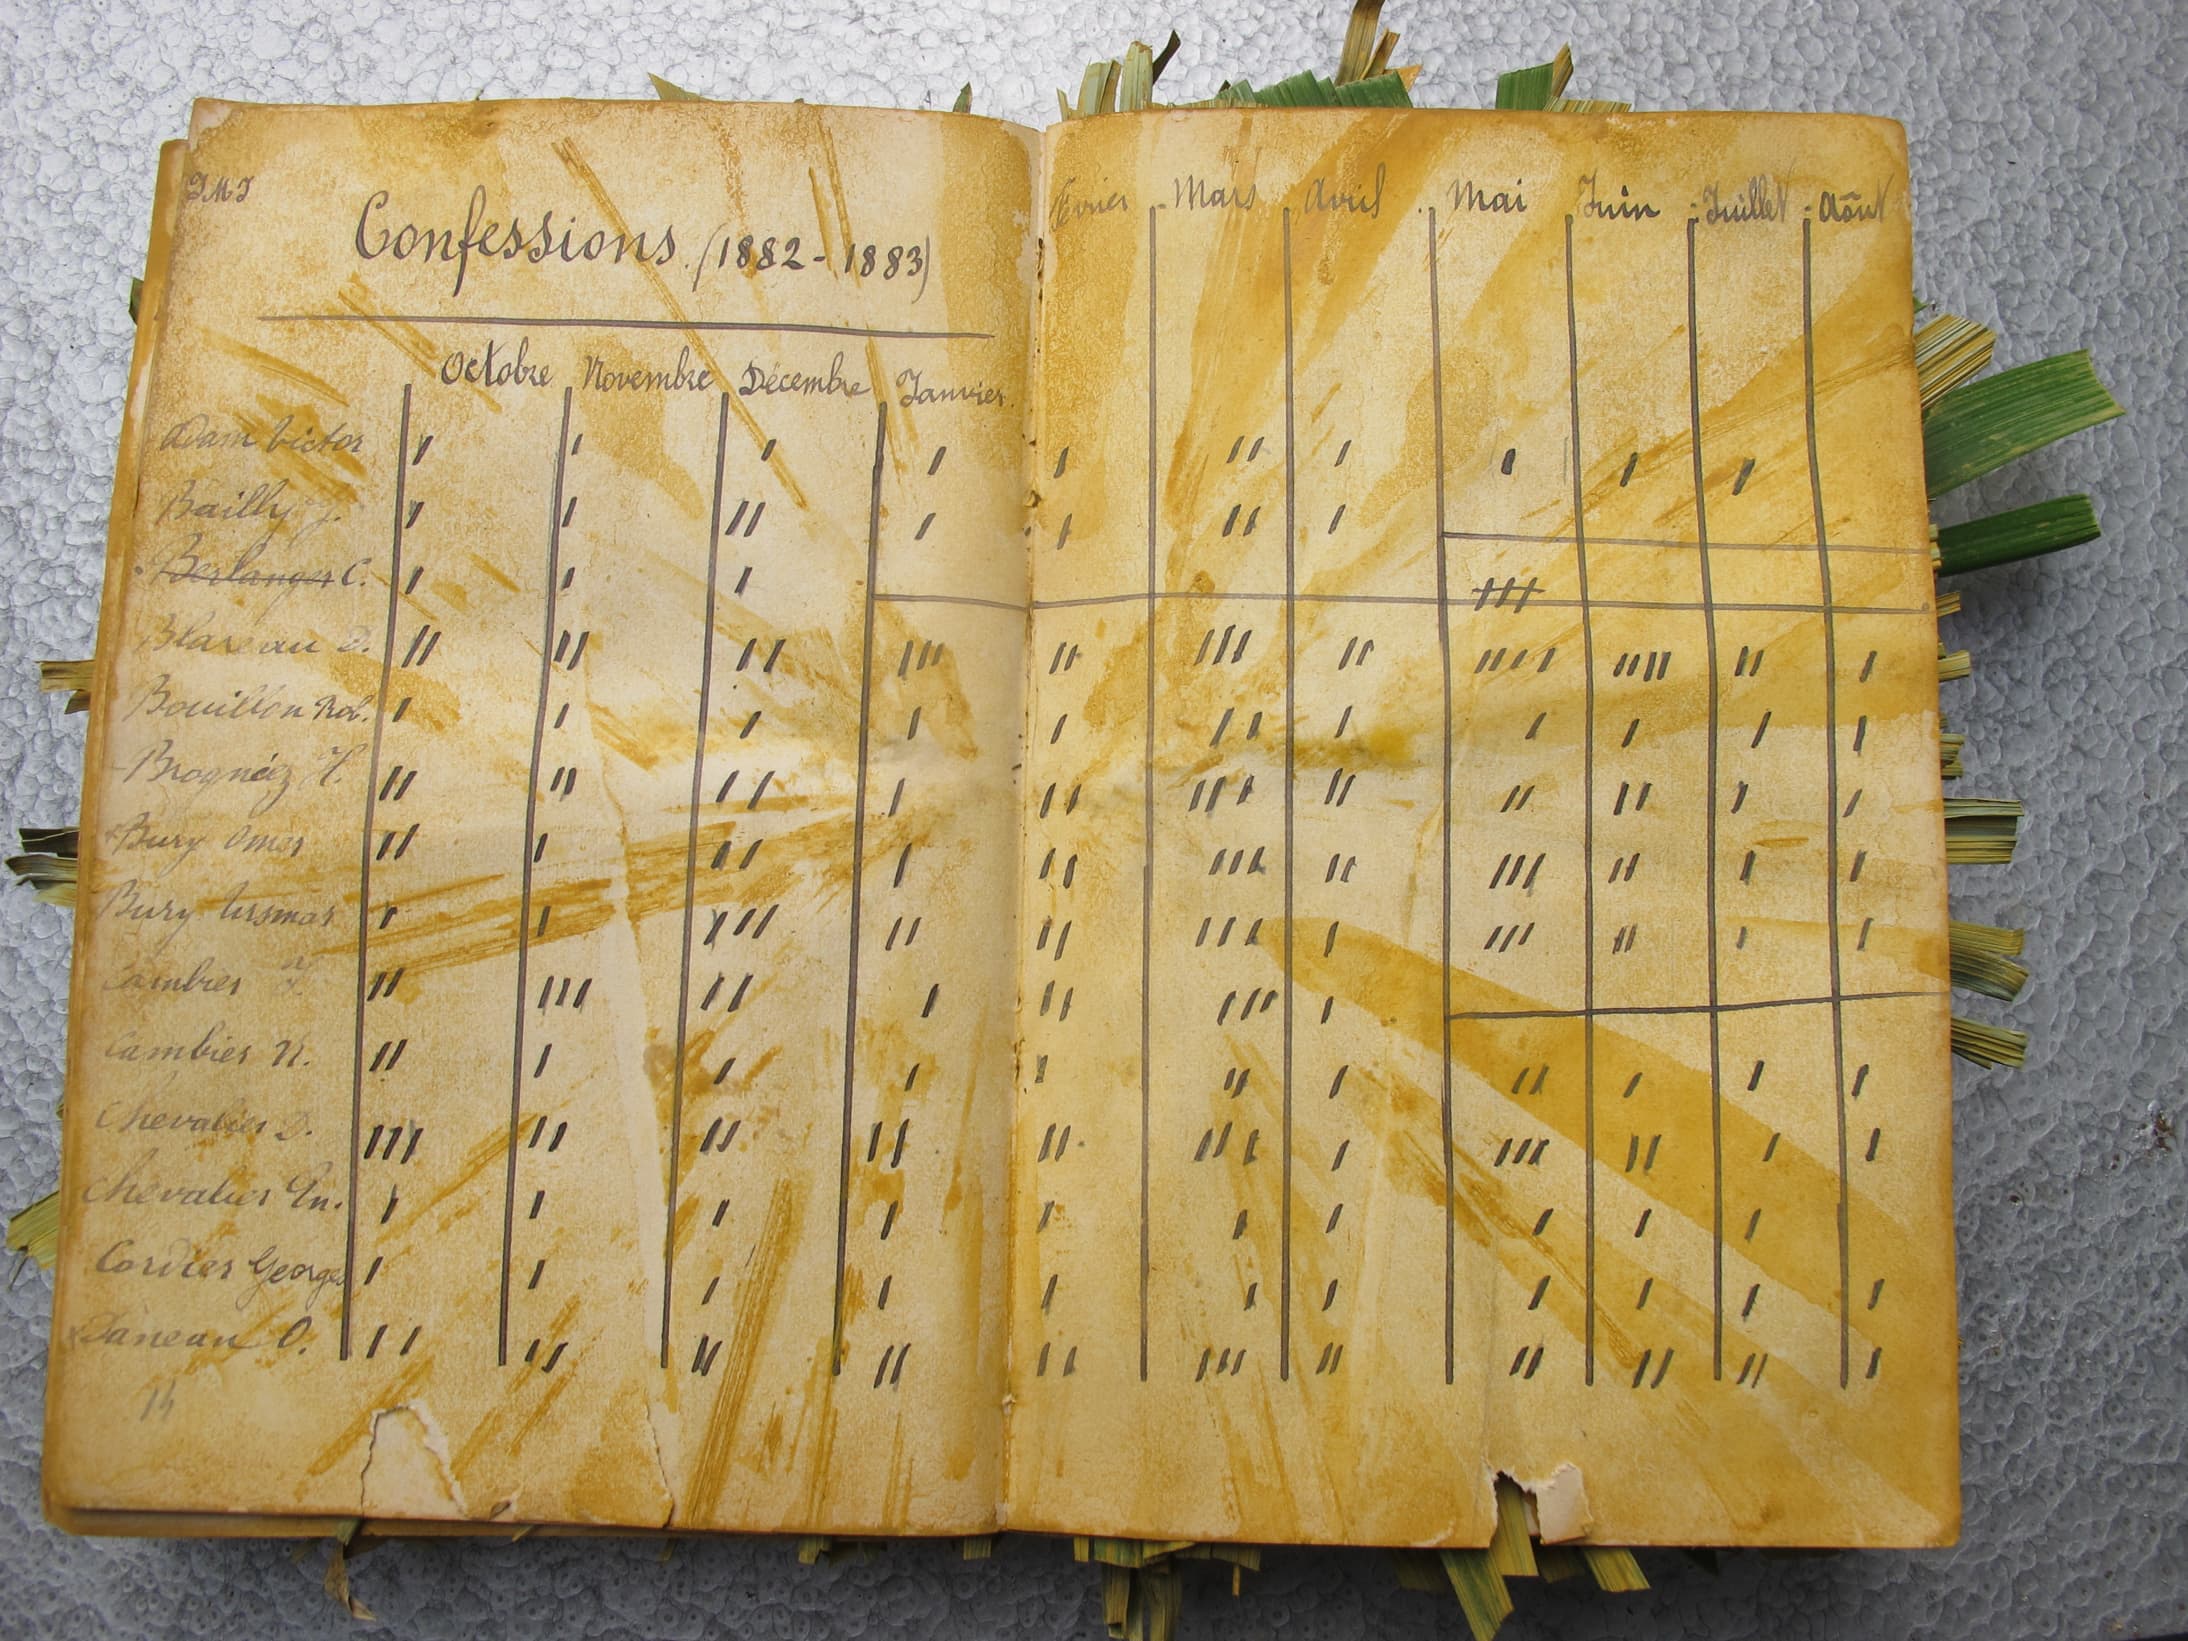 JMJ
Confessions. (1882-1883)
Octobre Novembre Décembre Janvier. Février Mars Avril Mai Juin Juillet Août
Adam Victor I I I I I II I I I I
Bailly J. I I II I I II I
Berlanger C. I I I III
Blareau D. II II II III II III II IIII IIII II I
Bouillon Rob. I I I I I III I I I I I
Brognéz H. II II II I II IIII II II II I I
Bury Omer II I II I II III II III II I I
Bury Ursmar I I III II II III I III II I I
Cambier J. II III II I II III I
Cambier N. II I I I I II I II I I I
Chevalier D. III II II II II III I III II I I
Chevalier Em. I I I I I I I I I I
Cordier Georges I I I I I I I I I I I
Daneau O. II II II II II III II II II II I
14